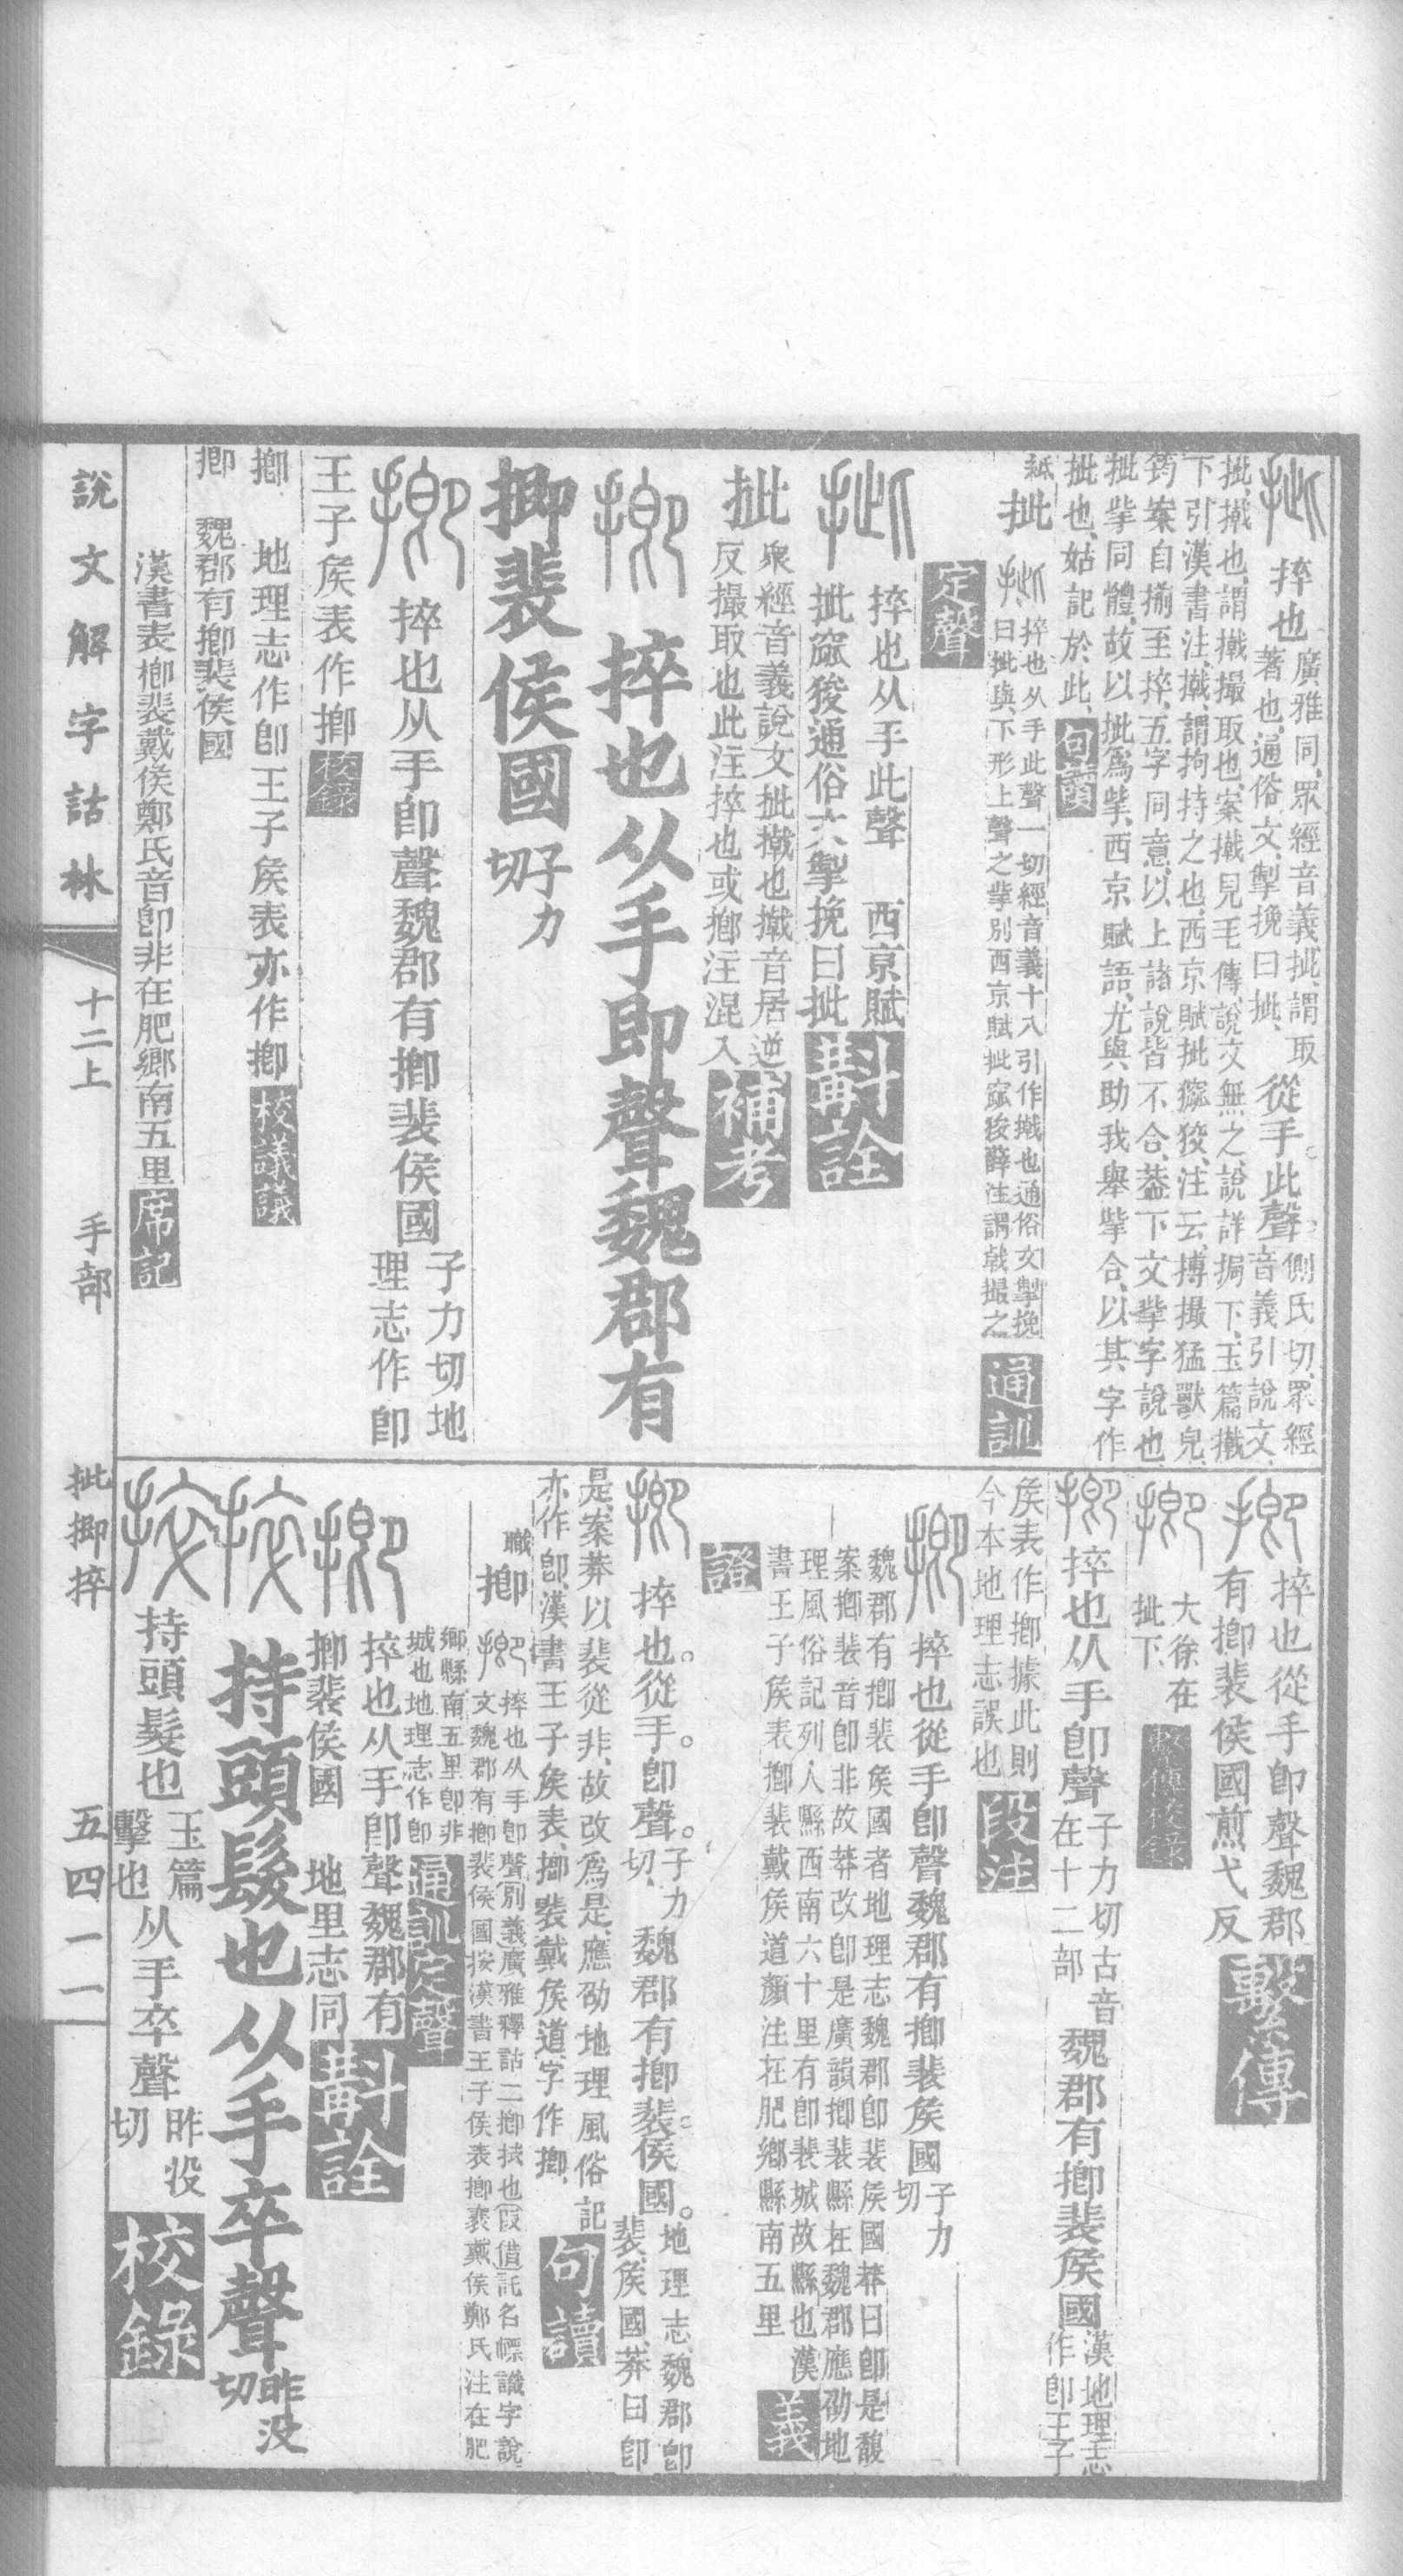 捽也廣雅同、眾經音義批、謂取
著也、通俗文、掣挽曰批、從手。此聲。側氏切、眾經
音義引說文、
批、㩻也、謂㩻撮取也、案㩻見毛傳、說文無之、說詳挶下、玉篇㩻
下引漢書注、㩻、謂拘持之也、西京賦批窳狻、注云、搏撮猛獸皃、
筠案自揃至捽、五字同意、以上諸說皆不合、葢下文㧘字說也、
批㧘同體、故以批爲㧘、西京賦語、尤與助我舉㧘合、以其字作
批也、姑記於此、句讀
批 捽也从手此聲一切經音義十八引作㩻也通俗文掣挽
曰批與、下形上聲之㧘別西京賦批窳狻薛注謂戟撮之 通訓
定聲
捽也从手此聲 西京賦
批窳狻通俗文掣挽曰批 斠詮
批 眾經音義說文批㩻也㩻音居逆
反撮取也此注捽也或揤注混入 補考
捽也从手即聲魏郡有
揤裴侯國 子力
切
捽也从手卽聲魏郡有揤裴侯國 子力切地
理志作卽
王子矦表作揤 校錄
揤 地理志作卽王子矦表亦作揤 校議議
揤 魏郡有揤裴侯國
漢書表揤裴戴侯鄭氏音卽非在肥鄉南五里 席記
捽也從手卽聲魏郡
有揤裴侯國煎弋反 繫傳
大徐在
批下 繫傳校錄
捽也从手卽聲 子力切古音
在十二部 魏郡有揤裴矦國 漢地理志
作卽王子
矦表作揤據此則
今本地理志誤也 段注
捽也從手卽聲魏郡有揤裴矦國 子力
切
魏郡有揤裴矦國者地理志魏郡卽裴矦國莽曰卽是馥
案揤裴音卽非故莽改卽是廣韻揤裴縣在魏郡應劭地
理風俗記列人縣西南六十里有卽裴城故縣也漢
書王子矦表揤裴戴矦道顏注在肥鄉縣南五里 義
證
捽也。從手。卽聲。子力
切、魏郡有揤裴侯國。地理志、魏郡卽
裴、矦國、莽曰卽
是、案莽以裴從非、故改爲是、應劭地理風俗記
亦作卽、漢書王子矦表、揤裴戴矦道、字作揤、 句讀
職
揤 捽也从手卽聲別義廣雅釋詁二揤拭也假借託名幖識字說
文魏郡有揤裴侯國按漢書王子侯表揤裴戴侯鄭氏注在肥
鄉縣南五里卽非
城也地理志作卽 通訓定聲
捽也从手卽聲魏郡有
揤裴侯國 地里志同 斠詮
持頭髮也从手卒聲 昨没
切
持頭髮也 玉篇
擊也 从手卒聲 昨没
切 校錄
說文解字詁林 十二上 手部 批揤捽 五四一一